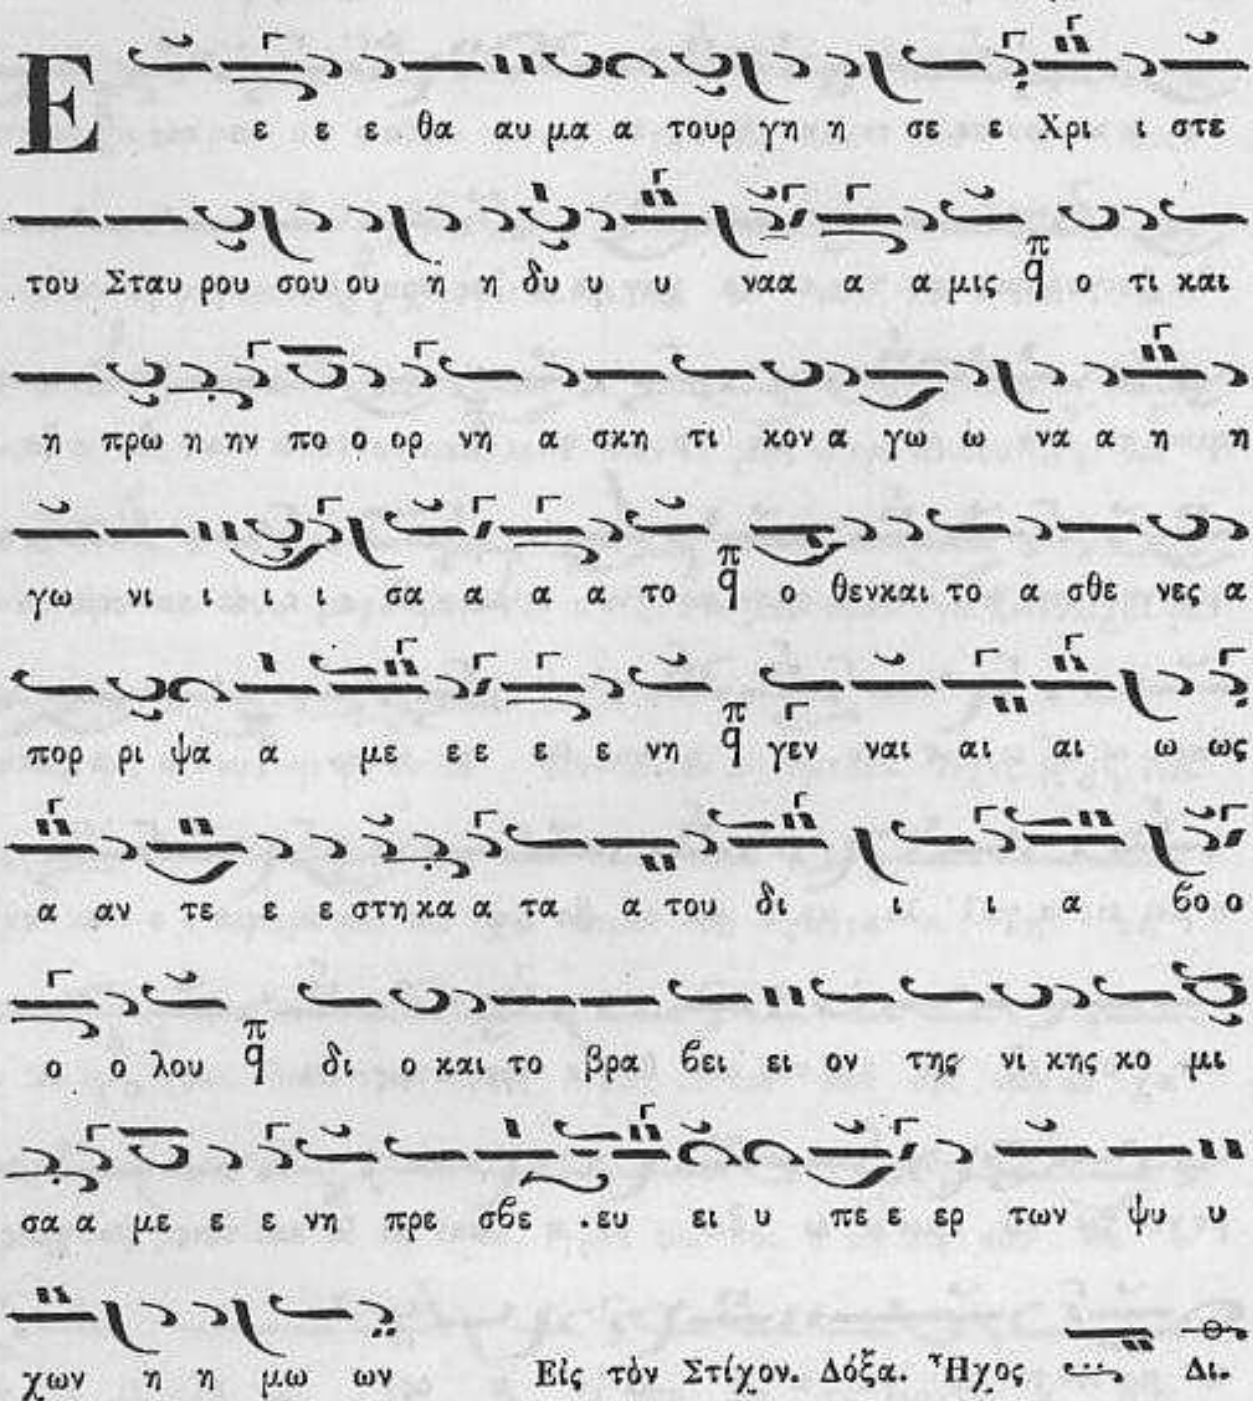 Ε ε ε ε θα αυ μα α τουρ γη η σε ε Χρι ι στε
του Σταυ ρου σου ου η η δυ υ υ ναα α α μις π q ο τι και
η πρω η ην πο ο ορ νη α σκη τι κον α γω ω να α η η
γω νι ι ι ι σα α α α το π q ο θεν και το α σθε νες α
πορ ρι ψα α με εε ε ε νη π q γεν ναι αι αι ω ως
α αν τε ε ε στη κα α τα α του δι ι ι α βο ο
ο ο λου π q δι ο και το βρα βει ει ον της νι κης κο μι
σα α με ε ε νη πρε σβε .ευ ει υ πε ε ερ των ψυ υ
χων η η μω ων Εἰς τὸν Στίχον. Δόξα. Ἦχος Δι.